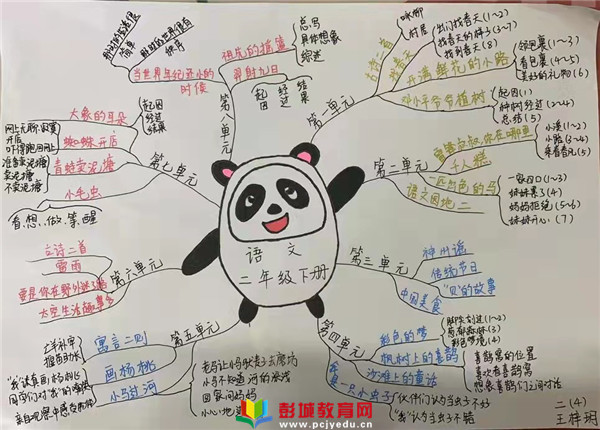 语文
二年级下册
第一单元
古诗二首
咏柳
村居
找春天
出门找春天(1~2)
找春天的样子(3~7)
找到春天(8)
开满鲜花的小路
领包裹(1~3)
看包裹(4~5)
美好的礼物(6)
邓小平爷爷植树
起因(1)
种树经过(2~4)
总结(5)
第二单元
雷锋叔叔,你在哪里
小溪(1~2)
小路(3~4)
寻春风(5)
千人糕
一匹出色的马
一家四口(1~3)
妹妹累了(4)
妈妈拒绝(5~6)
妹妹开心(7)
语文园地二
第三单元
神州谣
传统节日
"贝"的故事
中国美食
第四单元
彩色的梦
彩色梦境(4)
枫树上的喜鹊
喜鹊窝的位置
喜欢看喜鹊窝
想象喜鹊们之间对话
沙滩上的童话
我是一只小虫子
伙伴们认为当虫子不好
"我"认为当虫子不错
第五单元
寓言二则
亡羊补牢
揠苗助长
画杨桃
"我"认真画杨桃
小马过河
老马让小马驮麦子去磨坊
小马不知道河的深浅
回家问妈妈
第六单元
古诗二首
雷雨
要是你在野外迷了路
太空生活趣事多
第七单元
大象的耳朵
起因
经过
结果
蜘蛛开店
青蛙卖泥塘
准备卖泥塘
卖泥塘
不卖泥塘
小毛虫
看、想、做、等、醒
第八单元
祖先的摇篮
总写
具体想象
综述
羿射九日
起因 经过 结果
当世界年纪还小的时候
简单
秩序
二(4)
王梓玥
彭城教育网
www.pcjyedu.cn